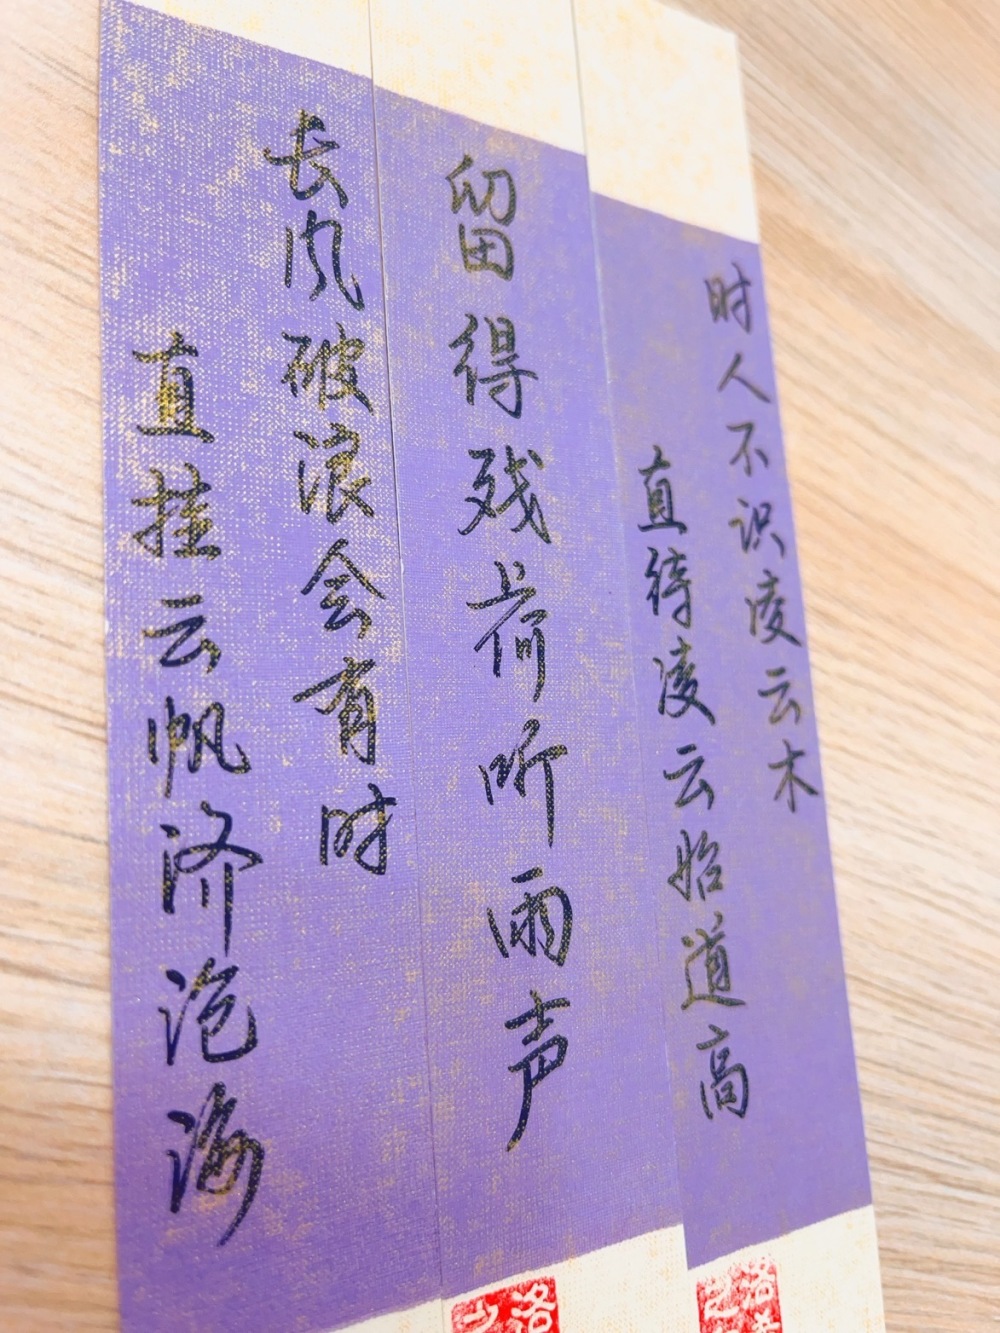 时人不识凌云木
直待凌云始道高
留得残荷听雨声
长风破浪会有时
直挂云帆济沧海